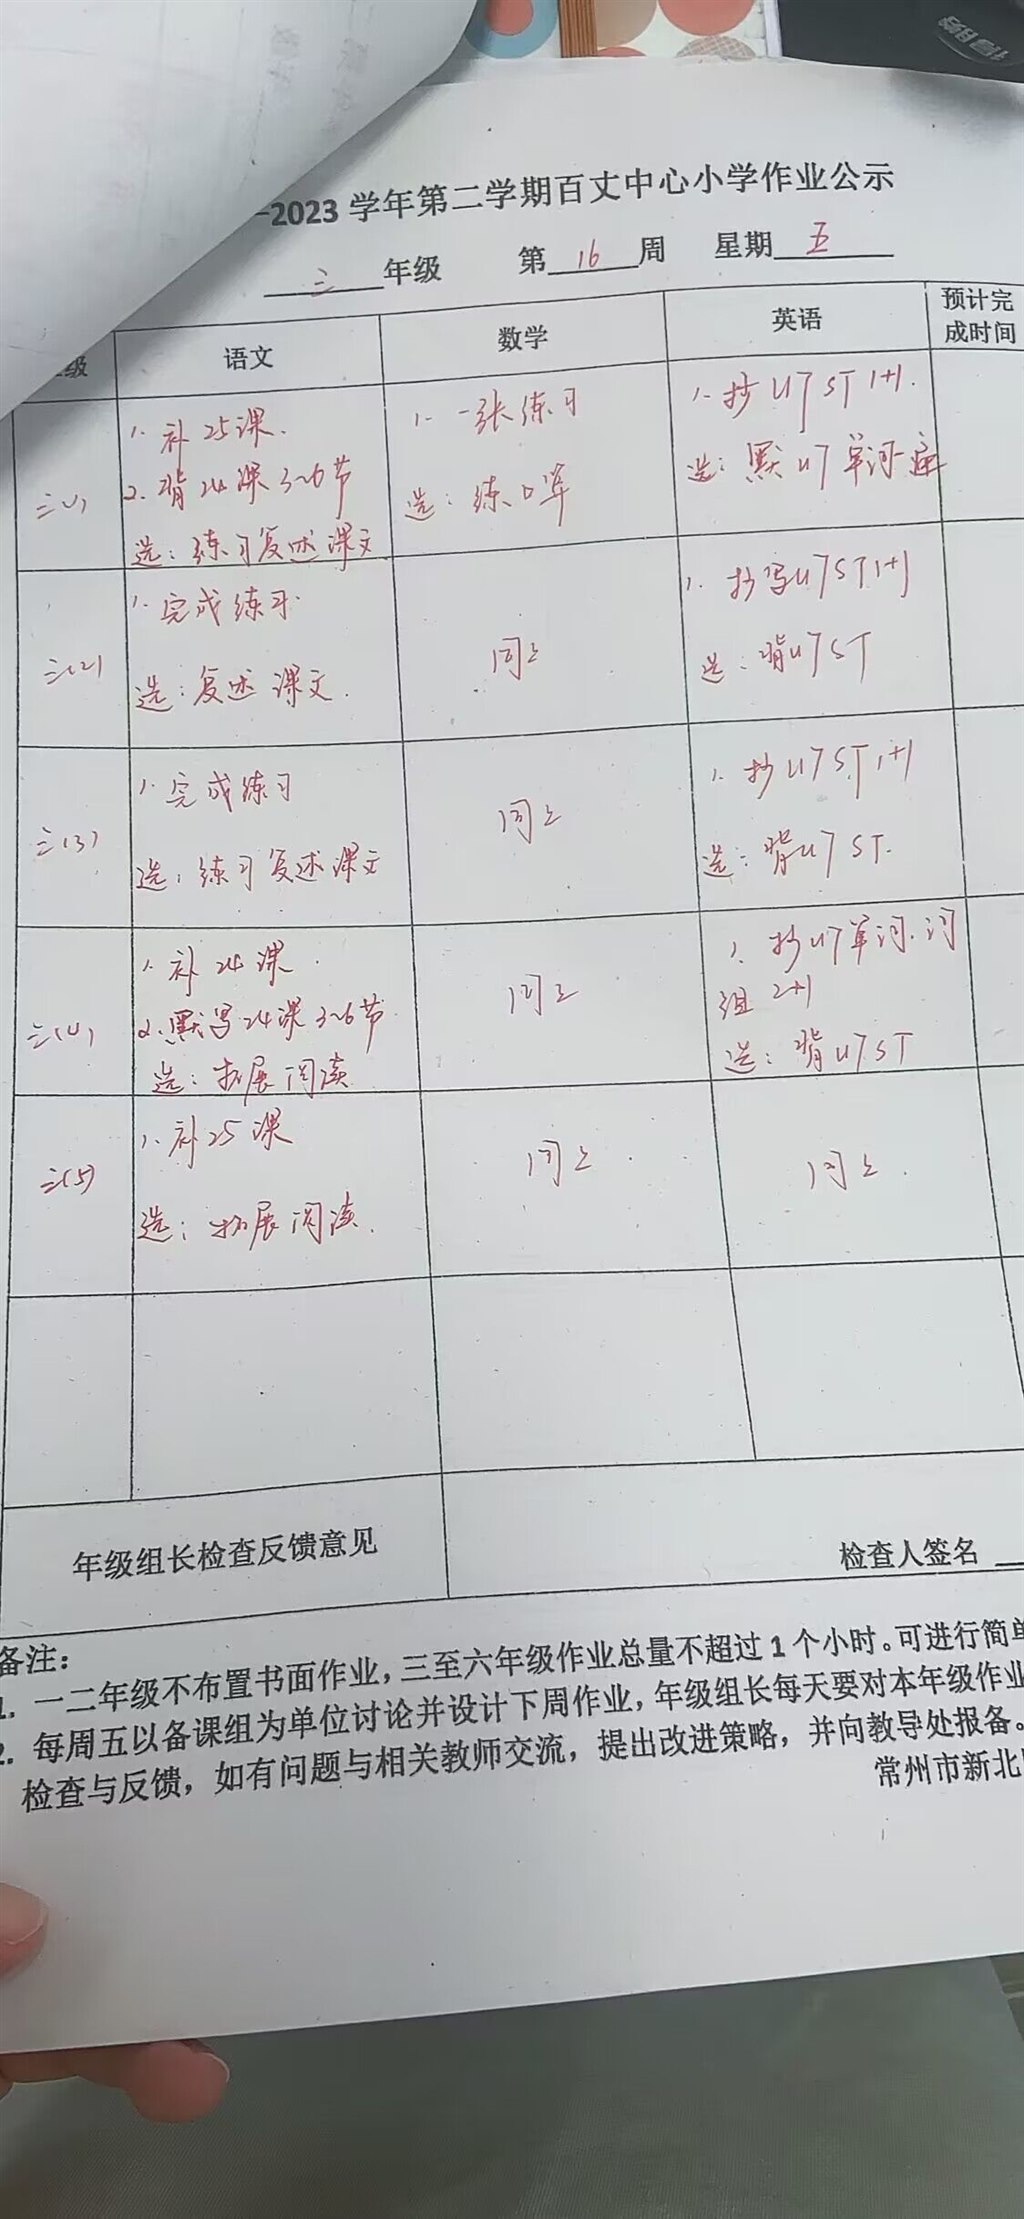 -2023 学年第二学期百丈中心小学作业公示
三 年级 第 16 周 星期 五
级 语文 数学 英语 预计完成时间
三(1)
1. 补25课.
2. 背24课3~6节
选：练习复述课文
1. 一张练习
选：练口算
1. 抄U7 ST 1+1.
选：默U7单词一遍
三(2)
1. 完成练习.
选：复述课文.
同上
1. 抄写U7 ST 1+1
选：背U7 ST
三(3)
1. 完成练习
选：练习复述课文
同上
1. 抄U7 ST 1+1
选：背U7 ST.
三(4)
1. 补24课.
2. 默写24课3~6节.
选：拓展阅读
同上
1. 抄U7单词.词
组 2+1
选：背U7 ST
三(5)
1. 补25课
选：拓展阅读.
同上
同上.
年级组长检查反馈意见
检查人签名
备注：
1. 一二年级不布置书面作业，三至六年级作业总量不超过 1 个小时。可进行简单
2. 每周五以备课组为单位讨论并设计下周作业，年级组长每天要对本年级作业
检查与反馈，如有问题与相关教师交流，提出改进策略，并向教导处报备。
常州市新北